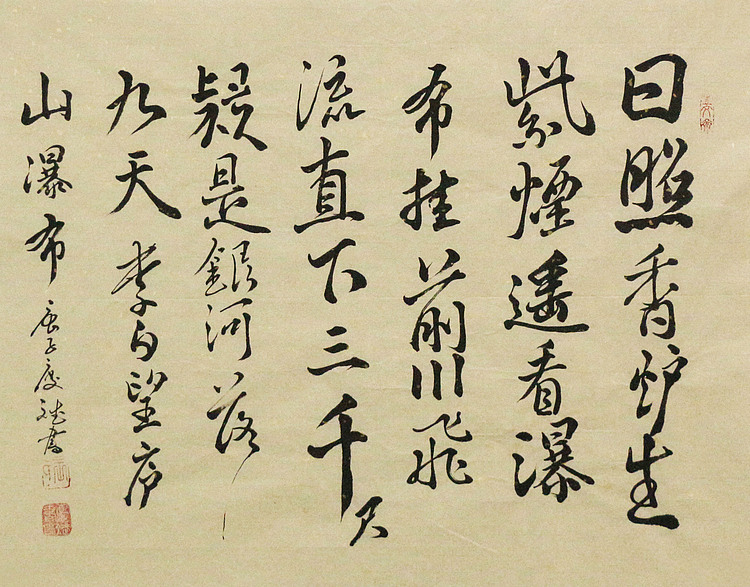 日照香炉生
紫煙遥看瀑
布挂前川飛
流直下三千尺
疑是銀河落
九天李白望庐
山瀑布庚子夏